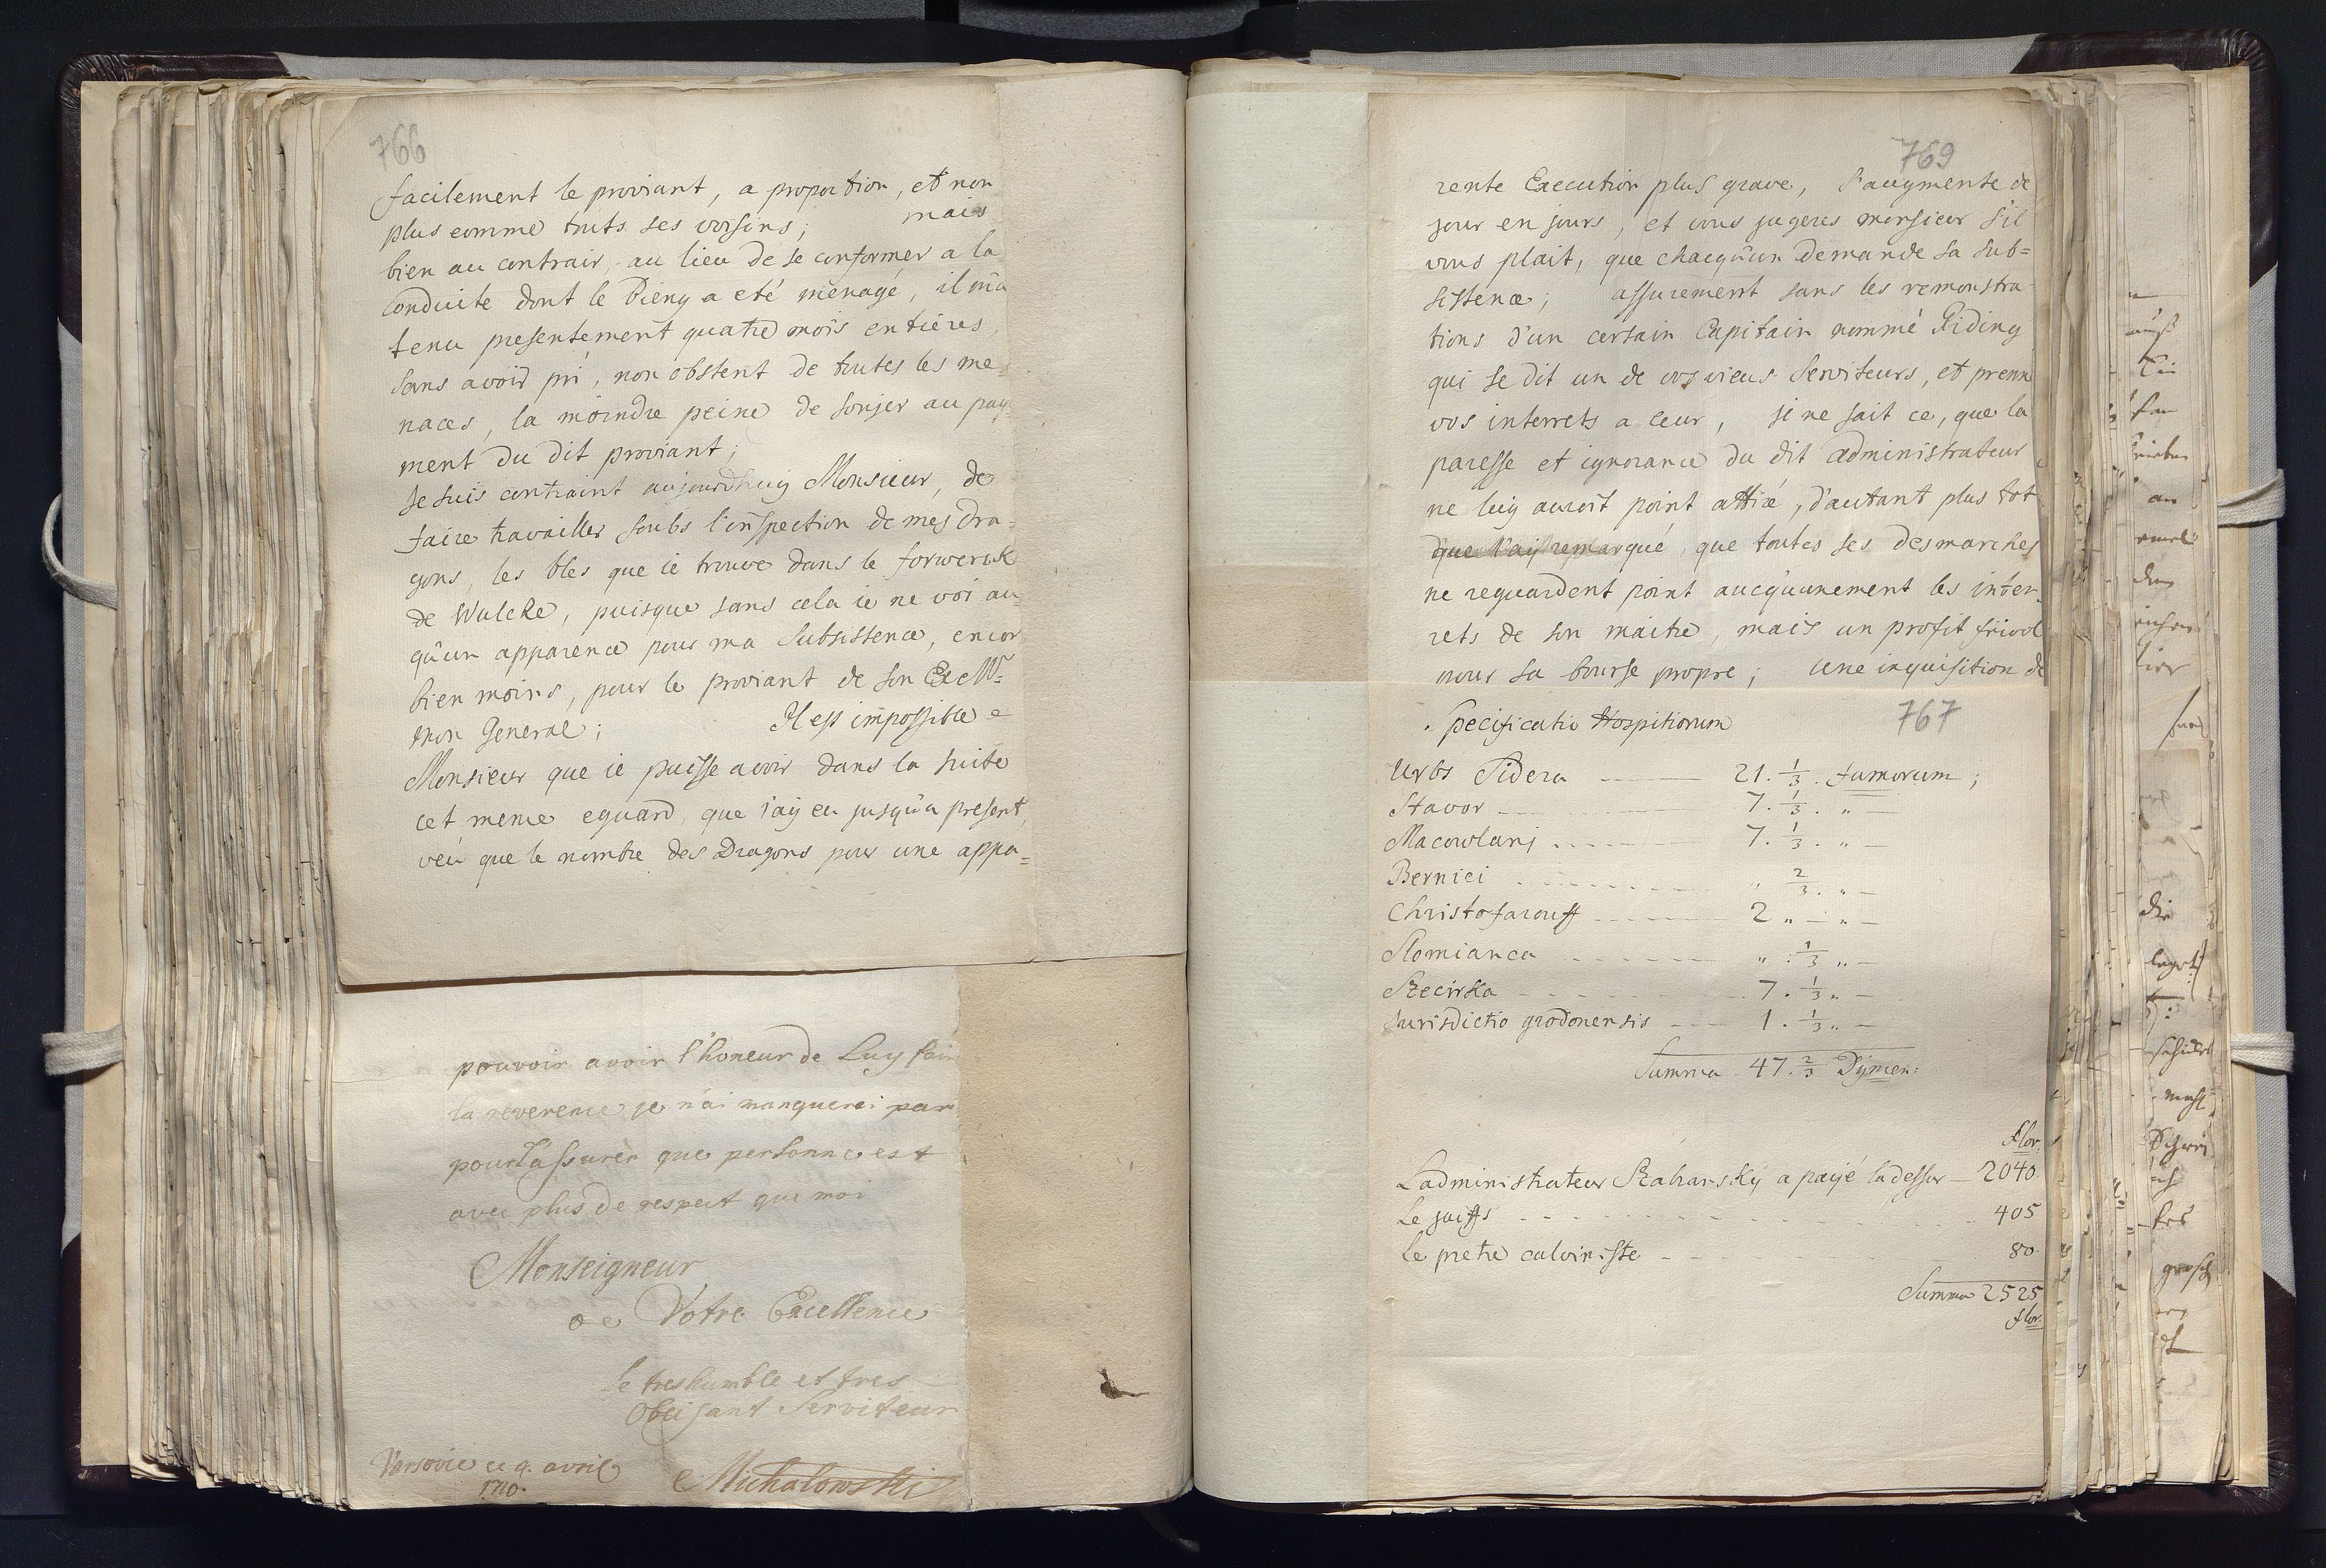 766
facilement le proviant, a proportion, et non
plus comme touts ses voisins; mais
bien au contrair, au lieu de se conformer a la
conduite dont le Bieng a eté menagé, il m'a
tenu presentement quatre mois entieres,
sans avoir pri, non obstent de toutes les me=
naces, la moindre peine de sonjer au pay
ment du dit proviant;
Je suis contraint aujourdhuy Monsieur, de
faire travailler soubs l'inspection de mes Dra=
gons, les bles que ie trouve dans le forwerck
de Wulcke, puisque sans cela ie ne voi au=
qu'un apparence pour ma subsistence, encor
bien moins, pour le proviant de son Exell:
mon General; Il est impossible
Monsieur que ie puisse avoir dans la suite
cet meme eguard, que i'ay eu jusqu'a present,
veu que le nombre des Dragons pour une appa=
pouvoir avoir l'honeur de Luy fair
la reverence je n'ai manquerai par
pour l'assurer que personne est
avec plus de respect que moi
Monseigneur
de Votre Excellence
le tres humble et tres
Obeisant Serviteur
Varsovie ce 9. avril
1710.
Michalowski
769
rente Execution plus grave, s'augmente de
jour en jours, et vous jugeres monsieur s'il
vous plait, que chacqu'un demande sa sub=
sistence; assurement sans les remonstra
tions d'un certain Capitain nommé Riding
qui se dit un de vos vieus Serviteurs, et prenn
vos interrets a ceur, je ne sait ce, que la
paresse et ignorance du dit administrateur
ne luy auroit point attiré, d'autant plus tot
que i'ay remarqué, que toutes ses desmarches
ne reguardent point aucqu'unement les inter=
rets de son maitre, mais un profit frivol
pour sa bourse propre; une inquisition de
767
Specificatio Hospitiorum
Urbs Sidera 21. 1/3. fumorum;
Stavor 7. 1/3. " —
Macowlani 7. 1/3. " —
Bernici " 2/3. " —
Christofarouff 2 " — " —
Slomianca " 1/3 " —
Szecirka 7. 1/3 " —
Jurisdictio grodonensis 1. 1/3 " —
Summa 47. 2/3 Dÿmen:
Flor:
L'administrateur Szaharskÿ a payé la dessur — 2040
Le juiffs 405
Le pretre calviniste 80
Summa 2525
flor.